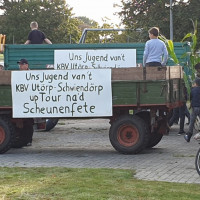 Uns Jugend van't
KBV Utörp-Schwiendörp
Uns Jugend van't
KBV Utörp-Schwiendörp
up Tour na'd
Scheunenfete